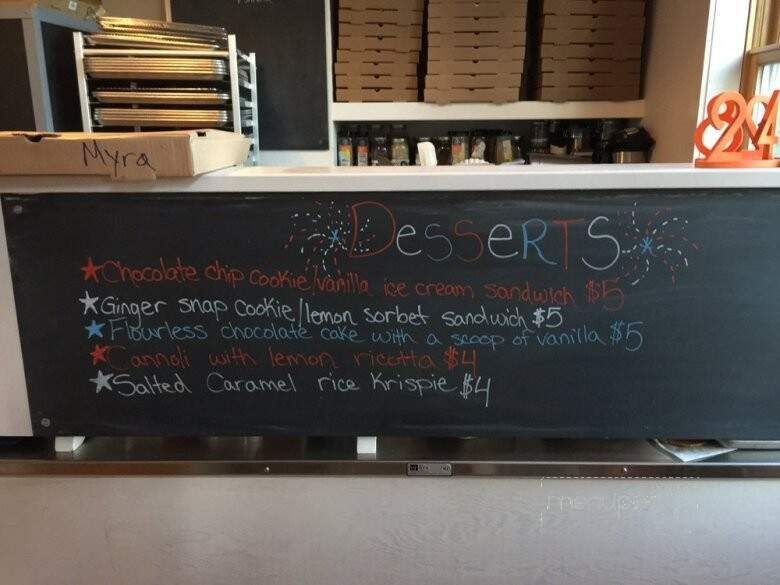 Myra
24
DesserTS
Chocolate chip cookie/vanilla ice cream sandwich $5
Ginger snap cookie/lemon sorbet sandwich $5
Flourless chocolate cake with a scoop of vanilla $5
Cannoli with lemon ricotta $4
Salted Caramel rice Krispie $4